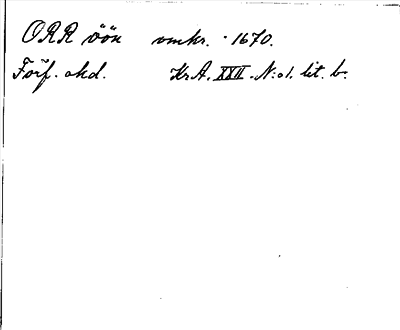 ORR öön omkr. 1670.
Förf. okd. Kr.A. XXII. N:o 1. lit. b.